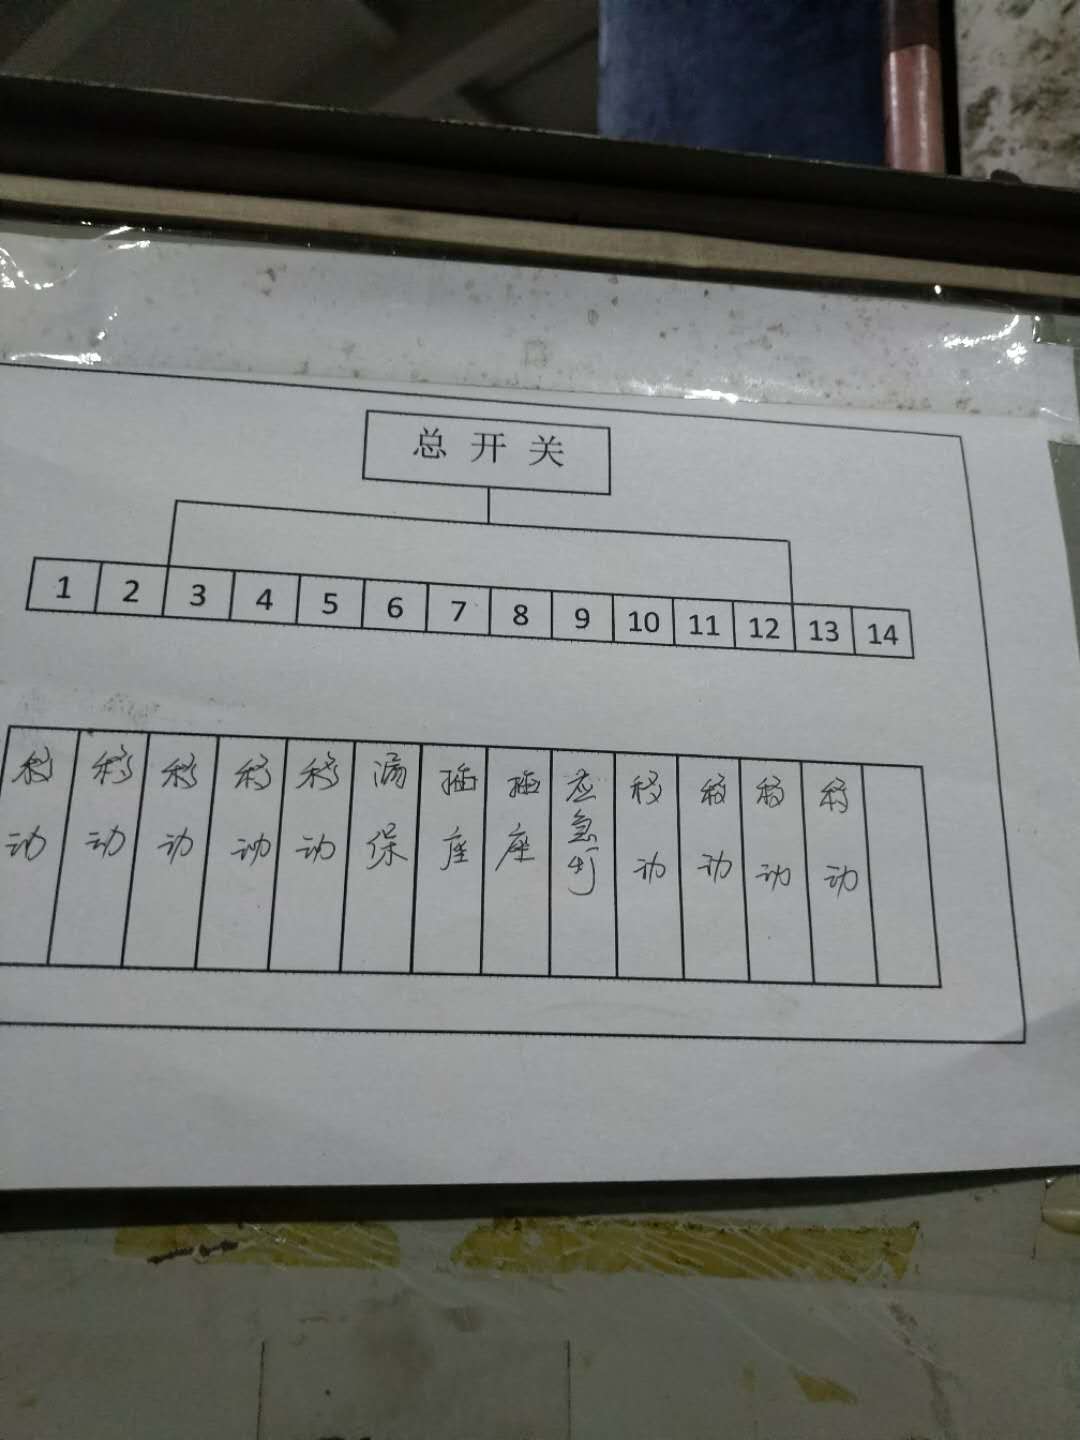 总开关
1 2 3 4 5 6 7 8 9 10 11 12 13 14
移动 移动 移动 移动 移动 漏保 插座 插座 应急灯 移动 移动 移动 移动